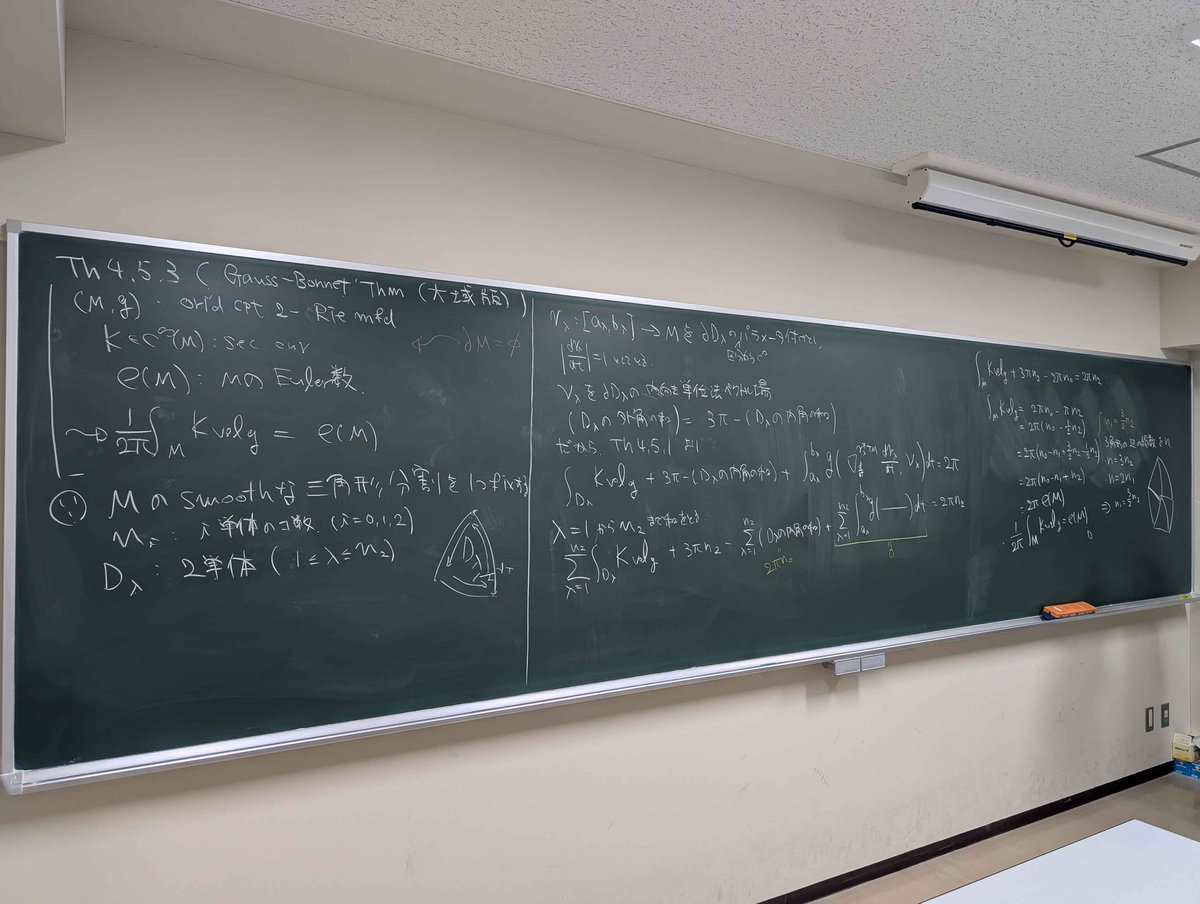 Th 4.5.3 (Gauss-Bonnet Thm (大域版))
(M, g) : ori'd cpt 2-Rie mfd
K ∈ C^∞(M) : sec cur ← ∂M = ∅
e(M) : MのEuler数
→ 1/2π ∫_M K vol_g = e(M)
∵ Mのsmoothな三角形分割を1つfixする
n_i : i単体のコ数 (i=0,1,2)
D_λ : 2単体 (1≤λ≤n_2)
D_λ
γ_λ : [a_λ, b_λ] → Mを∂D_λのパラメータ付けとし,
区分的C^∞
|dγ_λ/dt| = 1 とする
ν_λを∂D_λの内向き単位法ベクトル場
(D_λの外角の和) = 3π - (D_λの内角の和)
だから Th 4.5.1 より
∫_{D_λ} K vol_g + 3π - (D_λの内角の和) + ∫_{a_λ}^{b_λ} g( dγ_λ/dt, ν_λ) dt = 2π
λ=1からn_2まで和をとる.
Σ_{λ=1}^{n_2} ∫_{D_λ} K vol_g + 3πn_2 - Σ_{λ=1}^{n_2} (D_λの内角の和) + Σ_{λ=1}^{n_2} ∫_{a_λ}^{b_λ} g(——) dt = 2πn_2
2πn_0
0
∫_M K vol_g + 3πn_2 - 2πn_0 = 2πn_2
∫_M K vol_g = 2πn_0 - πn_2
= 2π(n_0 - 1/2 n_2)
= 2π(n_0 - n_1 + 3/2 n_2 - 1/2 n_2)
= 2π(n_0 - n_1 + n_2)
= 2π e(M)
∴ 1/2π ∫_M K vol_g = e(M)
n_1 = 3/2 n_2
3角形の辺の総数をn
n = 3n_2
n = 2n_1
⇒ n_1 = 3/2 n_2